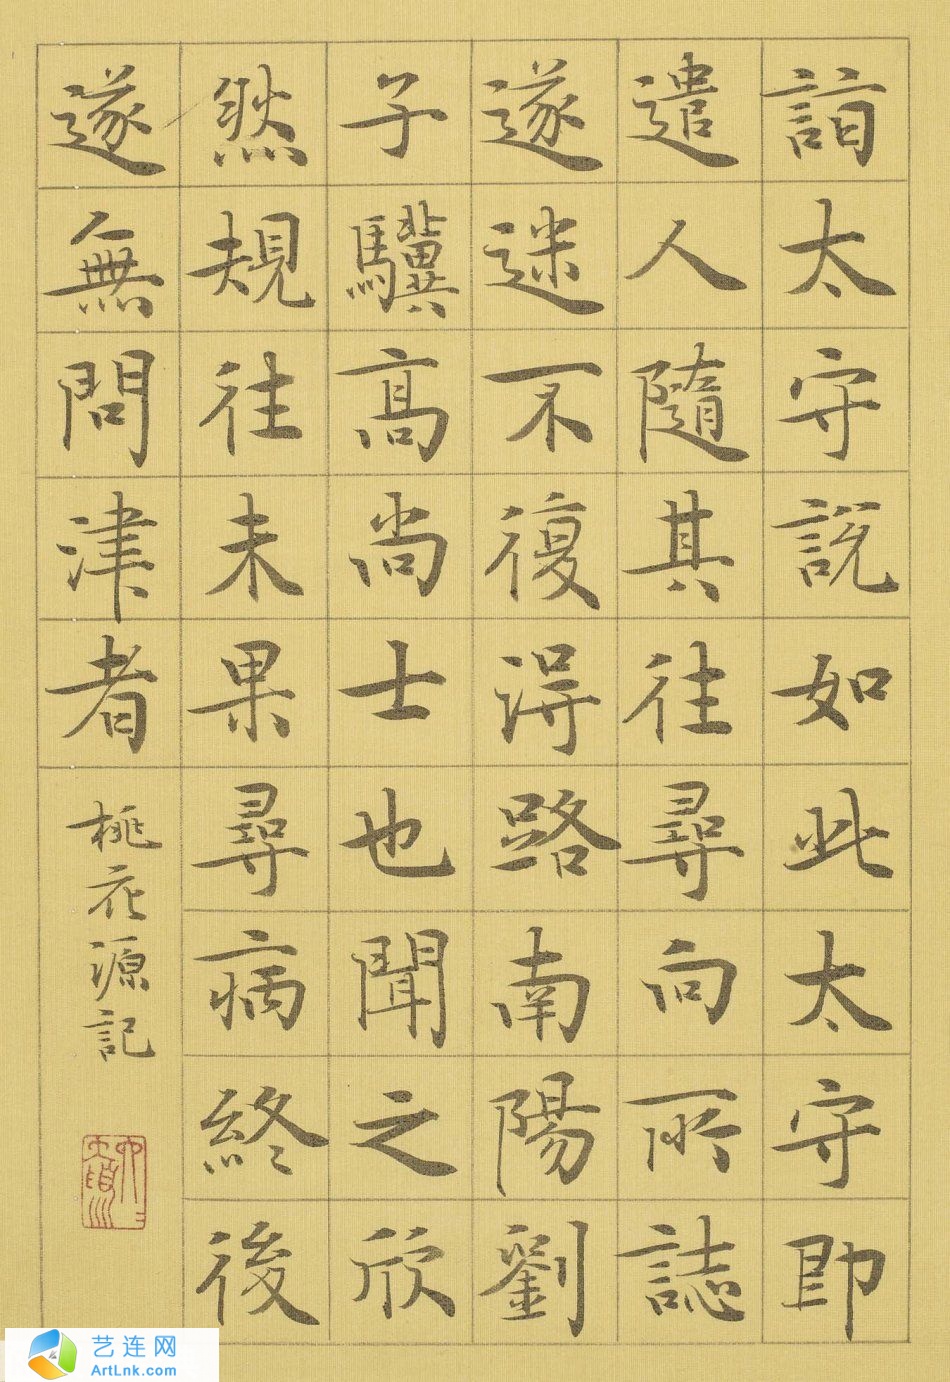 詣太守說如此太守即
遣人隨其往尋向所誌
遂迷不復得路南陽劉
子驥高尚士也聞之欣
然規往未果尋病終後
遂無問津者
桃花源記
艺连网
ArtLnk.com